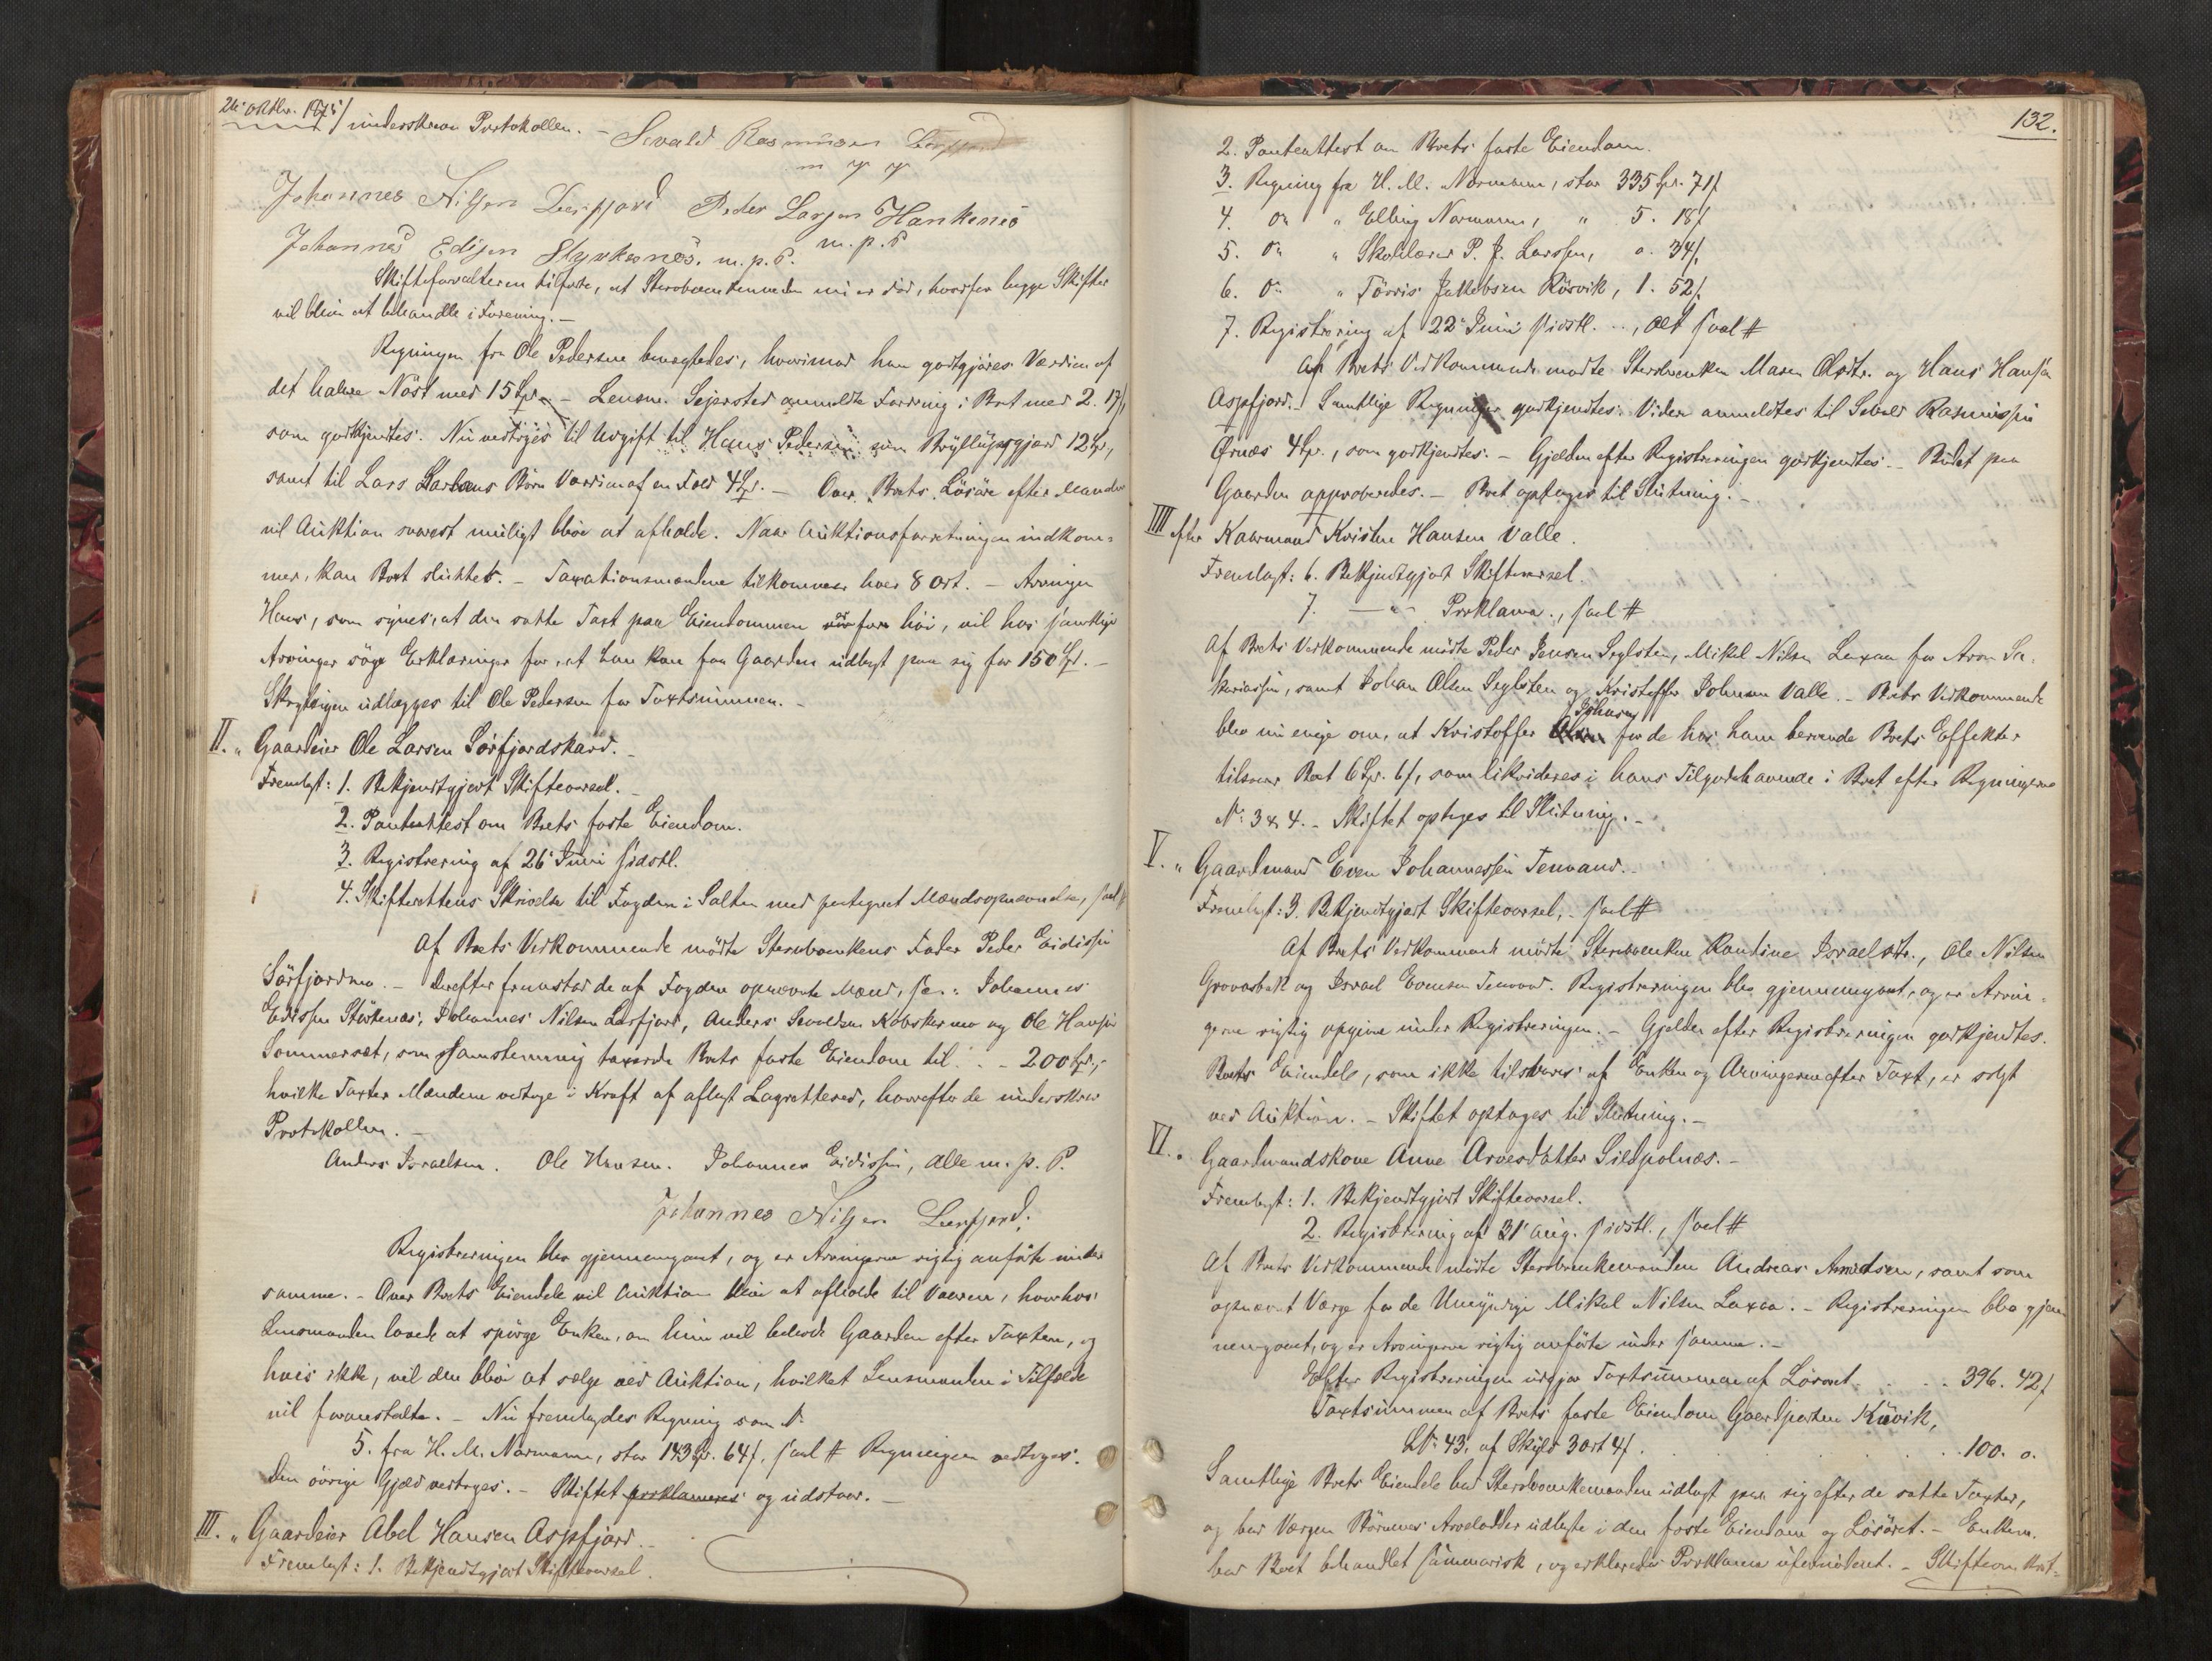 26' Oktbr. 1875
underskrev Protokollen. – Sivald Rasmussen
m p p
Johannes Nilsen Leirfjord Peder Larsen Hankenes
Johannes Edisen Styrkesnes. m. p. P. m. p. P
Skifteforvalteren tilførte, at Sterboenkemanden nu er död, hvorfor begge Skifter
vil blive at behandle i Forening. –
Regningen fra Ole Pedersen benegtedes, hvorimod han godtgjöres Værdien af
det halve Nöst med 15 Spd. – Lensm. Sejersted anmeldte Fordring i Boet med 2. 17/,
som godkjendtes. Nu vedtoges til Udgift til Hans Pedersen som Bryllupsgjærd 12 Sp,
samt til Lars Larsens Börn Værdien af en Foed 4 Sp. – Over Boets Lösöre efter Manden
vil Auktion snarest muligt blive at afholde. Naar Auktionsforretningen indkom-
mer, kan Boet sluttes. – Taxationsmændene tilkommer hver 8 ort. – Arvingen
Hans, som synes, at den satte Taxt paa Eiendommen er for höi, vil hos samtlige
Arvinger söge Erklæringer for, at han kan faa Gaarden udlagt paa sig for 150 Sp. –
udlægges til Ole Pedersen for Taxtsummen. –
II. " Gaardeier Ole Larsen Sörfjordskard. –
Fremlagt: 1. Bekjendtgjort Skiftevarsel. –
2. Panteattest om Boets faste Eiendom.
3. Registrering af 26' Juni sidstl.
4. Skifterettens Skrivelse til Fogden i Salten med paategnet Mændsopnævnelse, saal #
Af Boets Vedkommende mödte Sterboenkens Fader Peder Eidissen
Sörfjordmo. – Derefter fremstod de af Fogden opnævnte Mænd, s. s. Johannes
Edissen Störkesnæs, Johannes Nilsen Lerfjord, Anders og Ole Hansen
Sommerset, som samstemmig taxerede Boets faste Eiendom til . . – 200 Sp.,
hvilke Taxter Mændene vedtoge i Kraft af aflagt Lagretteed, hvorefter de underskrev
Protokollen. –
Anders Israelsen. Ole Hansen. Johannes Eidissen, alle m. p. P.
Johannes Nilsen Leerfjord.
Registreringen blev gjennemgaaet, og er Arvingerne rigtig anförte under
samme. – Over Boets Eiendele vil Auktion blive at afholde til Vaaren, hvorhos
Lensmanden lovede at spörge Enken, om hun vil beholde Gaarden efter Taxten, og
hvis ikke, vil den blive at sælge ved Auktion, hvilket Lensmanden i Tilfælde
vil foranstalte. – Nu fremlagdes Regning som N:
5. fra H. M. Normann, stor 143 Sp. 64/, saal # Regningen vedtoges.
Den övrige Gjæld vedtoges. – Skiftet proklameres og udstaar. –
III. " Gaardeier Abel Hansen Aspfjord. –
Fremlagt: 1. Bekjendtgjort Skiftevarsel.
132.
2. Panteattest om Boets faste Eiendom.
3. Regning fra H. M. Normann, stor 335 Sp. 71/
4. Do " Elling Normann, " 5. 18/
5. Do " Skolelærer P. J. Larssen, 0. 34/.
6. Do " Törris Jakobsen Rösvik, 1. 52/.
7. Registrering af 22' Juni sidstl. .., alt saal #
Af Boets Vedkommende mödte Sterboenken Maren Olsdtr. og Hans Hansen
Aspfjord. – Samtlige Regninger godkjendtes. Videre anmeldtes til Sivald Rasmussen
Ørnæs 4 Sp., som godkjendtes. – Gjælden efter Registreringen godkjendtes. – Budet paa
Gaarden approberedes. – Boet optages til Slutning. –
IIII efter Kaarmand Kristen Hansen Valle.
Fremlagt: 6. Bekjendtgjort Skiftevarsel.
7. — " – Proklama., saal #
Af Boets Vedkommende mödte Peder Jensen Seglsten, Mikal Nilsen Laxaa for Aron Sa-
kariassen, samt Johan Olsen Seglsten og Kristoffer Johnsen Valle. – Boets Vedkommende
blev nu enige om, at Kristoffer Johnsen for de hos ham beroende Boets Effekter
tilsvarer Boet 6 Sp. 6/, som likvideres i hans Tilgodehavende i Boet efter Regningerne
N: 3 & 4. – Skiftet optages til Slutning. –
V. " Gaardmand Even Johannessen Tennvand. –
Fremlagt: 3. Bekjendtgjort Skiftevarsel, – saal #
Af Boets Vedkommende mödte Sterboenken Rantine Israelsdtr., Ole Nilsen
Grovasbak og Israel Evensen Tenvand. Registreringen blev gjennemgaaet, og er Arvin-
gerne rigtig opgivne under Registreringen. – Gjælden efter Registreringen godkjendtes.
Boets Eiendele, som ikke tilsvares af Enken og Arvingerne efter Taxt, er solgt
ved Auktion. – Skiftet optages til Slutning. –
VI. " Gaardmandskone Anne Arvesdatter Sildpolnæs. –
Fremlagt: 1. Bekjendtgjort Skiftevarsel.
2. Registrering af 31' Aug. sidstl., saal #
Af Boets Vedkommende mödte Sterboenkemanden Andreas Amundsen, samt som
opnævnt Værge for de Umyndige Mikal Nilsen Laxaa. – Registreringen blev gjen-
nemgaaet, og er Arvingerne rigtig anförte under samme. –
Efter Registreringen udgjør Taxtsummen af Lösöret . . . . 396. 42/
Taxtsummen af Boets faste Eiendom Gaardparten Küvik,
LN: 43, af Skyld 3 ort 4/. . . . . . . 100. 0.
Samtlige Boets Eiendele bad Sterboenkemanden udlagt paa sig efter de satte Taxter,
og bad Værgen Börnenes Arvelodder udlagte i den faste Eiendom og Lösöret. – Enkem.
bad Boet behandlet summarisk, og erklærede Proklama ufornödent. –